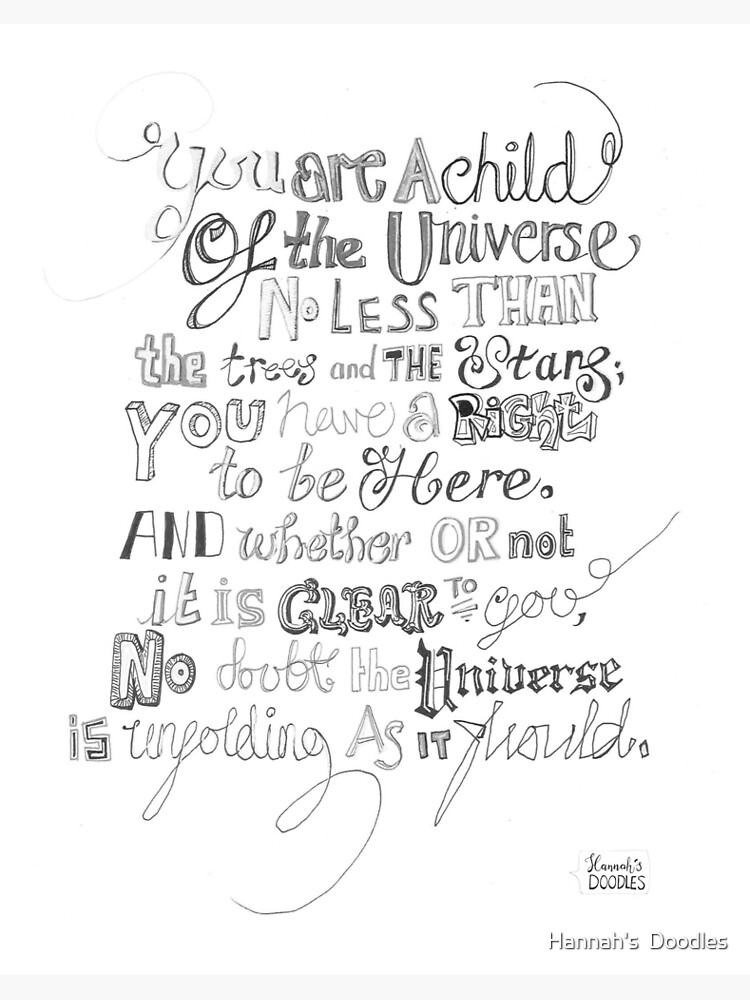 You are A child
Of the Universe
No LESS THAN
the trees and THE Stars;
YOU have a RiGht
to be Here.
AND whether OR not
it is CLEAR TO you,
No doubt the Universe
is unfolding As IT should.
Hannah's
DOODLES
Hannah's Doodles